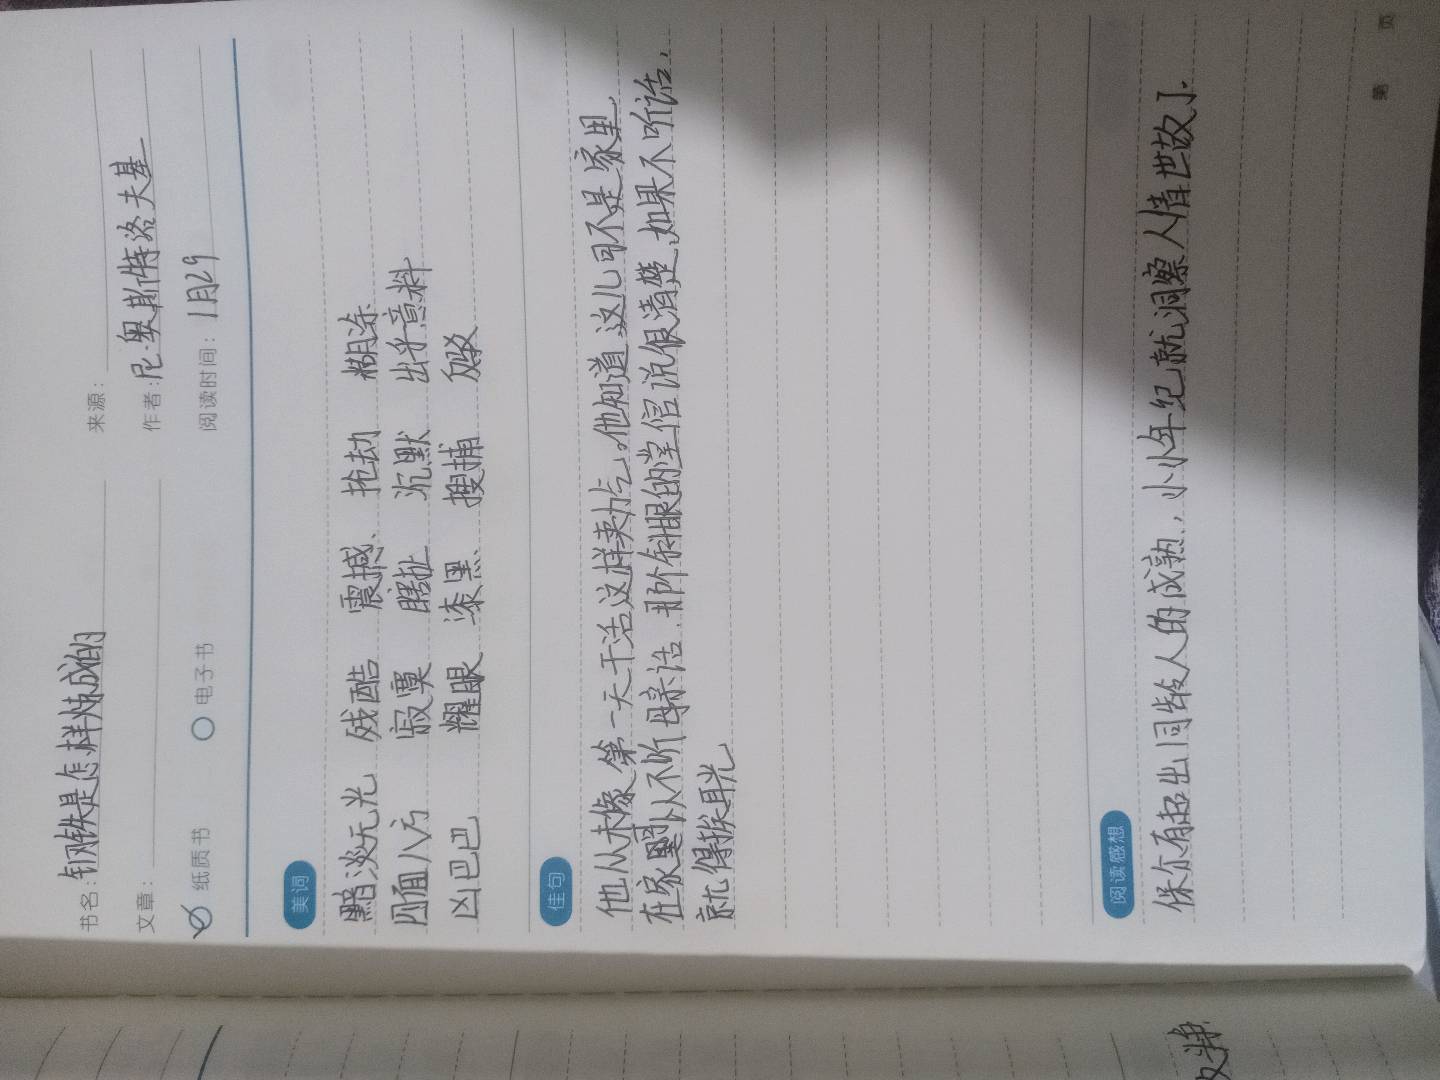 书名:钢铁是怎样炼成的 来源:
文章: 作者:尼·奥斯特洛夫基
纸质书 电子书 阅读时间:1月29
美词
黯淡无光 残酷 震撼、 抢劫 糊涂
四面八方 寂寞 瞎扯 沉默 出乎意料
凶巴巴 耀眼 漆黑 搜捕
佳句
他从未像第一天干活这样卖力气。他知道,这儿可不是家里,
在家里可以不听母亲话.那个斜眼的堂倌说很清楚,如果不听话,
就得挨耳光
阅读感想
保尔有超出同龄人的成熟,小小年纪就洞察人情世故了.
第 页